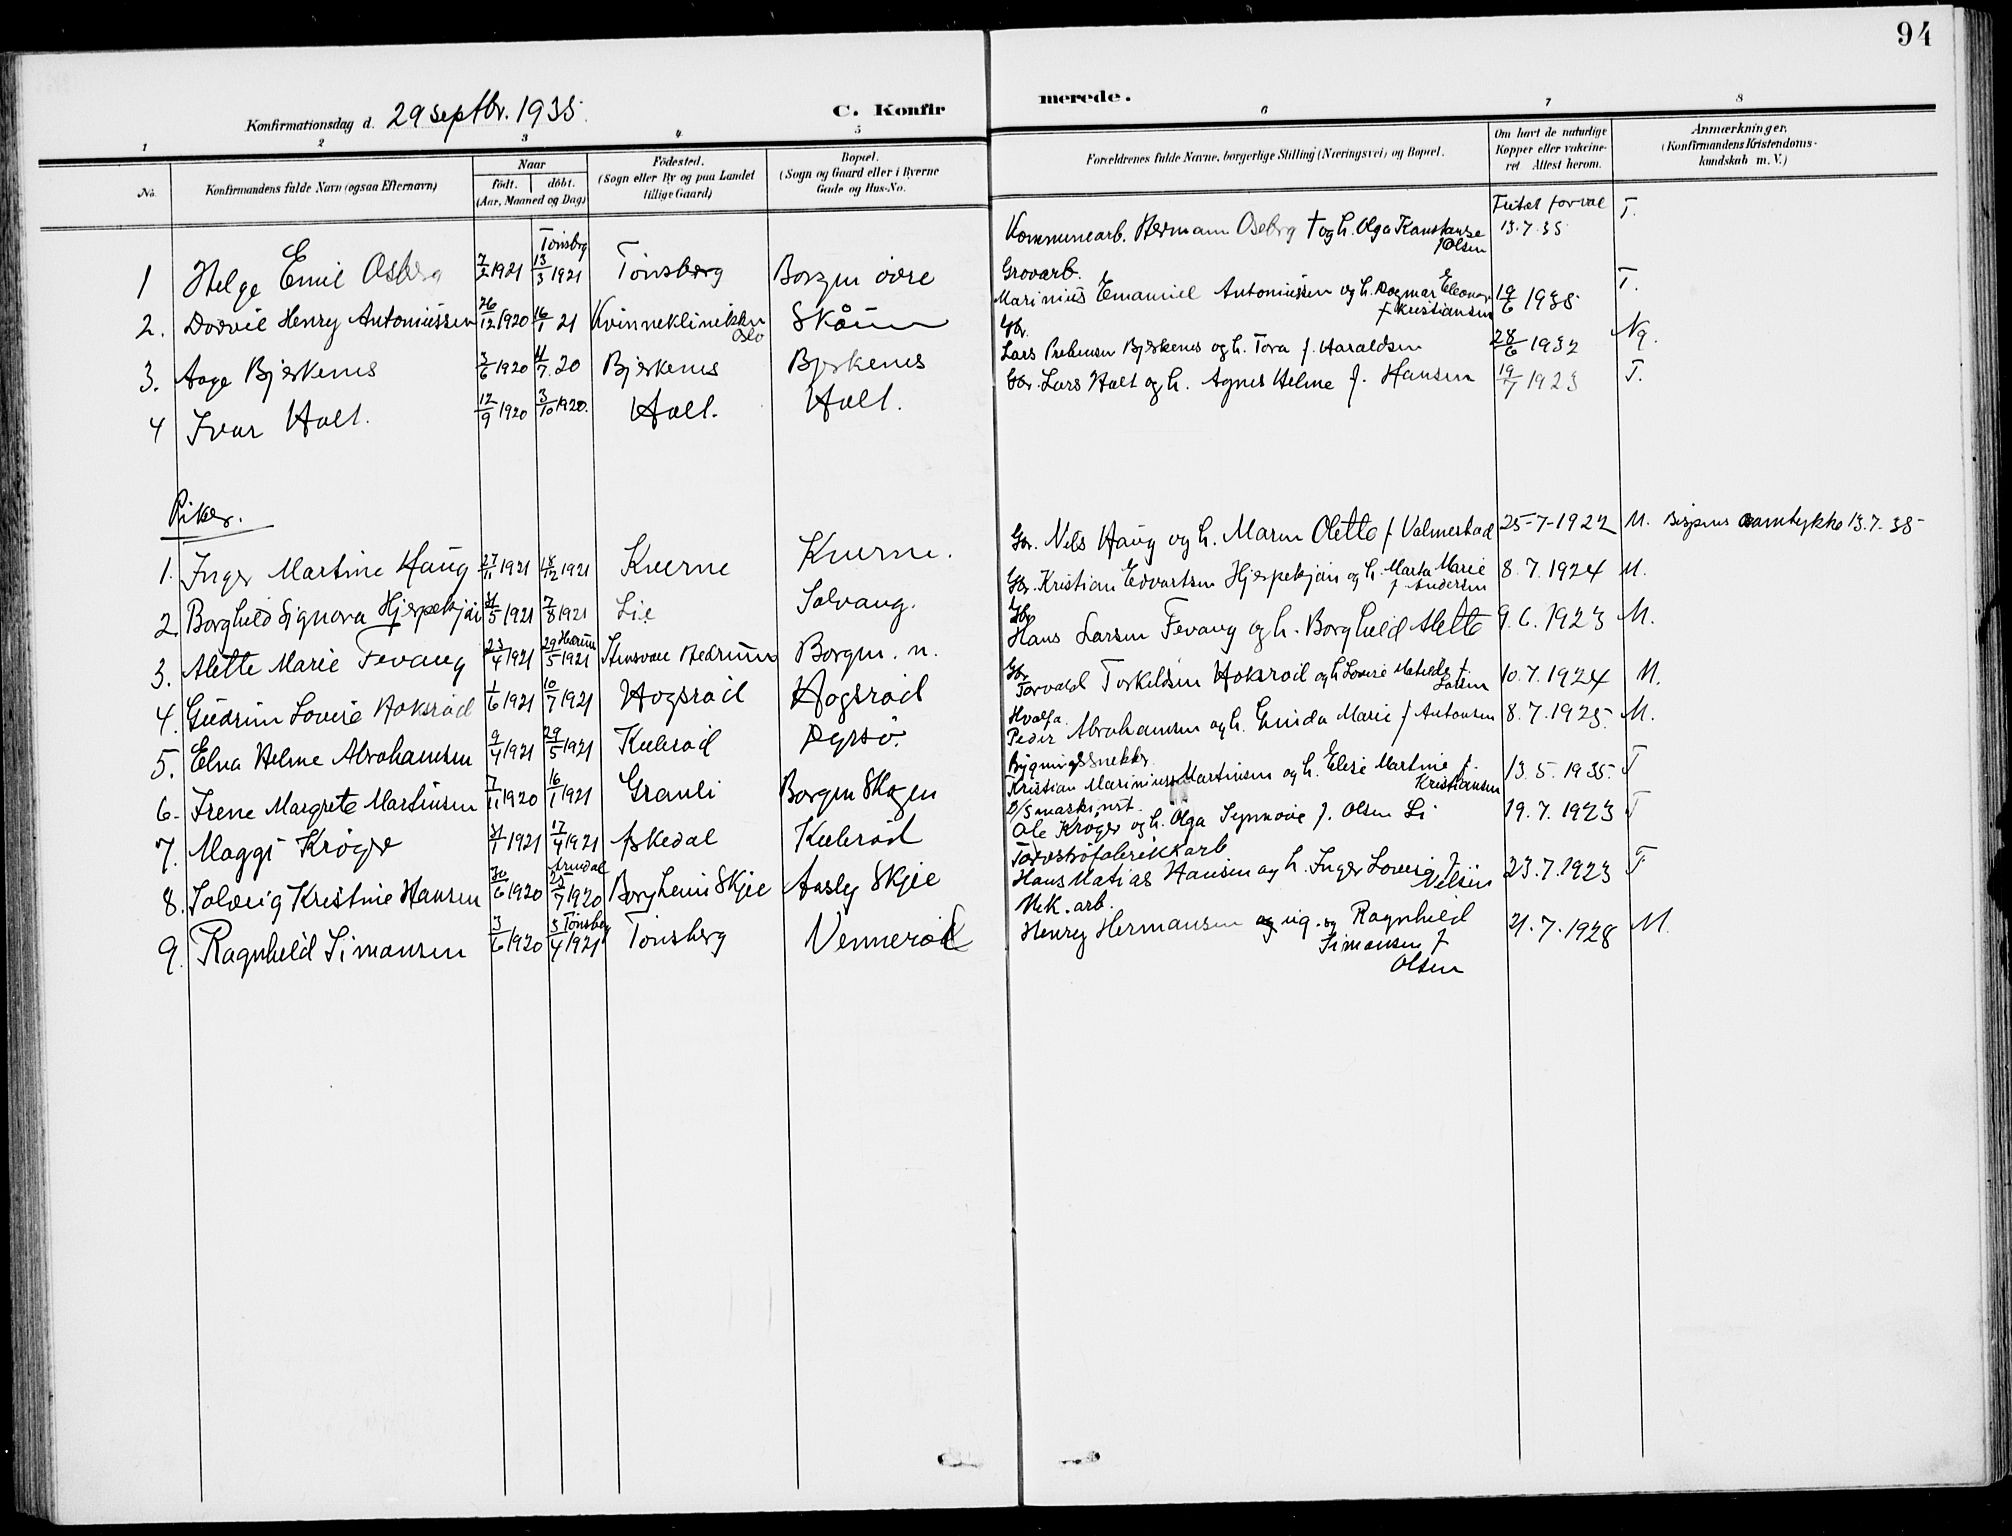 94
Konfirmationsdag d. 29 septbr. 1935.
C. Konfirmerede.
1 2 3 4 5 6 7 8
No.
Konfirmandens fulde Navn (ogsaa Efternavn)
Naar
födt. döbt.
(Aar, Maaned og Dag)
Födested.
(Sogn eller By og paa Landet
tillige Gaard)
Bopæl.
(Sogn og Gaard eller i Byerne
Gade og Hus-No.
Forældrenes fulde Navne, borgerlige Stilling (Næringsvei) og Bopæl.
Om havt de naturlige
Kopper eller vakcine-
ret Attest herom.
Anmærkninger.
(Konfirmandens Kristendoms-
kundskab m. V.)
1 Helge Emil Oseberg 7/2 1921 Tönsbrg 13/3 1921 Tönsberg Borgen övre Kommunearb. Herman Oseberg † og h. Olga Konstanse f Olsen 13.7.35 T.
2. Dodvil Henry Antoniussen 26/12 1920 16/1 21 Kvinneklinikken Oslo Skåum Grovarb. Marinius Emanuel Antoniussen og h. Dagmar Eleonor f Kristiansen 19/6 1935 T.
3. Aage Bjerkenes 3/6 1920 4/7. 20 Bjerkenes Bjerkenes Gbr. Lars Prebensen Bjerkenes og h. Tora f. Haraldsen 28/6 1932 Ng.
4 Ivar Holt. 12/9 1920 3/10 1920. Holt. Holt. Gbr. Lars Holt og h. Agnes Helene f. Hansen 19/7 1923 T.
Piker.
1. Inger Martine Haug 27/11 1921 18/12 1921 Knerne Knerne. Gbr. Nils Haug og h. Maren Olette f Valmestad 25-7-1922 M. Bispens samtykke 13.7.35
2. Borghild Signora Hjerpekjön 31/5 1921 7/8 1921 Lie Solvang. Gbr. Kristian Edvartsen Hjerpekjön og h. Marta Marie f Andersen 8.7.1924 M.
3. Alette Marie Fevang 23/4 1921 29/5 1921 Borgen. n. Gbr Hans Larsen Fevang og h. Borghild Alette 9.6.1923 M.
4. Gudrun Lovise Hoksröd 1/6 1921 10/7 1921 Hogsröd Hogsröd Gbr Torvald Torkildsen Hoksröd og h Lovise Matilde f. Larsen 10.7.1924 M.
5. Elna Helene Abrahamsen 9/4 1921 29/5 1921 Kuleröd Dyrsö. Hvalfa. Peder Abrahamsen og h. Gunda Marie f Antonsen 8.7.1925. M.
6. Irene Margrete Martinsen 7/11 1920 16/1 1921 Granli Borgen Skogen Bygningssnekker Kristian Marinius Martinsen og h. Elise Martine f. Kristiansen 13.5.1935. T
7. Maggi Kröger 31/1 1921 17/4 1921 Askedal Kuleröd D/S maskinist. Ole Kröger og h. Olga Synnöve f. Olsen Li 19.7.1923 T
8. Solveig Kristine Hansen 30/6 1920 Arendal 25/7 1920 Borgheim Skjee Aasly Skjee Torvströfabrikkarb Hans Matias Hansen og h. Inger Lovise f Nilsen 23.7.1923 T
9. Ragnhild Simonsen 3/6 1920 Tönsberg 3/4 1921 Tönsberg Venneröd Mek. arb. Henry Hermansen og ug. sy Ragnhild Simonsen f Olsen 21.7.1928 M.